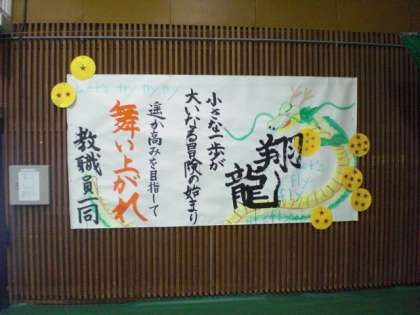 翔龍
小さな一歩が
大いなる冒険の始まり
遥か高みを目指して
舞い上がれ
教職員一同